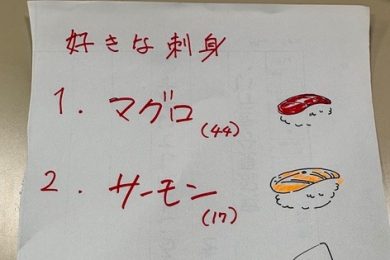 好きな刺身
1. マグロ(44)
2. サーモン(17)